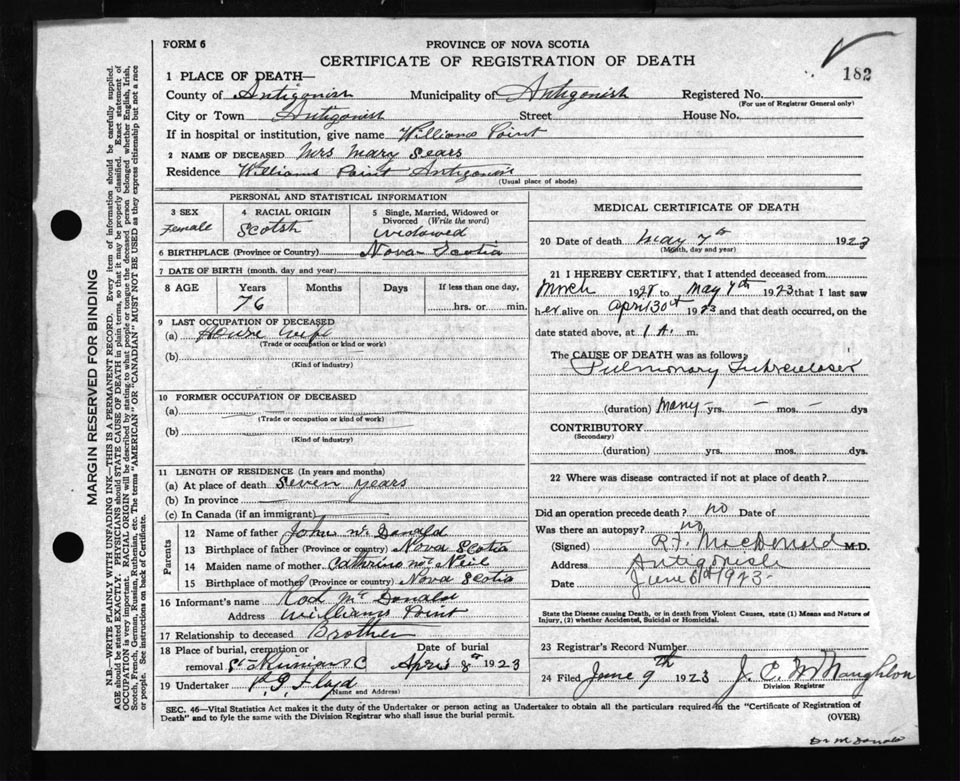 FORM 6
PROVINCE OF NOVA SCOTIA
CERTIFICATE OF REGISTRATION OF DEATH
182
1 PLACE OF DEATH—
County of Antigonish Municipality of Antigonish Registered No.
(For use of Registrar General only)
City or Town Antigonish Street House No.
If in hospital or institution, give name Williams Point
2 NAME OF DECEASED Mrs Mary Sears
Residence Williams Point Antigonish
(Usual place of abode)
PERSONAL AND STATISTICAL INFORMATION
3 SEX Female
4 RACIAL ORIGIN Scotsh
5 Single, Married, Widowed or Divorced (Write the word) widowed
6 BIRTHPLACE (Province or Country) Nova Scotia
7 DATE OF BIRTH (month, day and year)
8 AGE Years Months Days If less than one day,
76 hrs. or min.
9 LAST OCCUPATION OF DECEASED
(a) House wife
(Trade or occupation or kind of work)
(b)
(Kind of industry)
10 FORMER OCCUPATION OF DECEASED
(a)
(Trade or occupation or kind of work)
(b)
(Kind of industry)
11 LENGTH OF RESIDENCE (In years and months)
(a) At place of death Seven years
(b) In province
(c) In Canada (if an immigrant)
Parents
12 Name of father John Mc Donald
13 Birthplace of father (Province or country) Nova Scotia
14 Maiden name of mother Cathrine Mc Neil
15 Birthplace of mother (Province or country) Nova Scotia
16 Informant's name Rod Mc Donald
Address Williams Point
17 Relationship to deceased Brother
18 Place of burial, cremation or removal St Ninians C
Date of burial April 8th 1923
19 Undertaker P G Floyd
(Name and Address)
MEDICAL CERTIFICATE OF DEATH
20 Date of death May 7th 1923
(Month, day and year)
21 I HEREBY CERTIFY, that I attended deceased from
March 1928 to May 7th 1923 that I last saw
her alive on April 30th 1923 and that death occurred, on the
date stated above, at 1 A. m.
The CAUSE OF DEATH was as follows:
Pulmonary Tuberculosis
(duration) Many yrs. — mos. — dys
CONTRIBUTORY
(Secondary)
(duration) yrs. mos. dys.
22 Where was disease contracted if not at place of death?
Did an operation precede death? no Date of
Was there an autopsy? no
(Signed) R. F. MacDonald M.D.
Address Antigonish
Date June 6th 1923
State the Disease causing Death, or in death from Violent Causes, state (1) Means and Nature of
Injury, (2) whether Accidental, Suicidal or Homicidal.
23 Registrar's Record Number
24 Filed June 9th 1923 J. C. McNaughton
Division Registrar
SEC. 46—Vital Statistics Act makes it the duty of the Undertaker or person acting as Undertaker to obtain all the particulars required in the "Certificate of Registration of
Death" and to fyle the same with the Division Registrar who shall issue the burial permit.
(OVER)
Dr McDonald
MARGIN RESERVED FOR BINDING
N.B.—WRITE PLAINLY WITH UNFADING INK—THIS IS A PERMANENT RECORD. Every item of information should be carefully supplied.
AGE should be stated EXACTLY. PHYSICIANS should STATE CAUSE OF DEATH in plain terms, so that it may be properly classified. Exact statement of
OCCUPATION is very important. RACIAL ORIGIN will be described by stating to what people or tongue the deceased person belonged whether English, Irish,
Scotch, French, German, Russian, Ruthenian, etc. The terms "AMERICAN" OR "CANADIAN" MUST NOT BE USED as they express citizenship but not a race
or people. See instructions on back of Certificate.